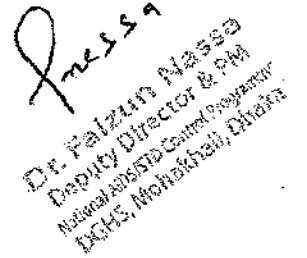 Nessa
Dr. Faizun Nassa
Deputy Director & PM
National Aids/STD Control Programme
DGHS, Mohakhali, Dhaka